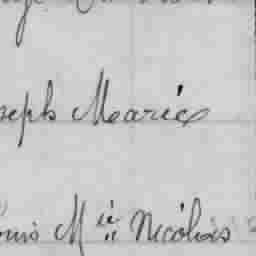 seph Marie
ouis Mie Nicolas